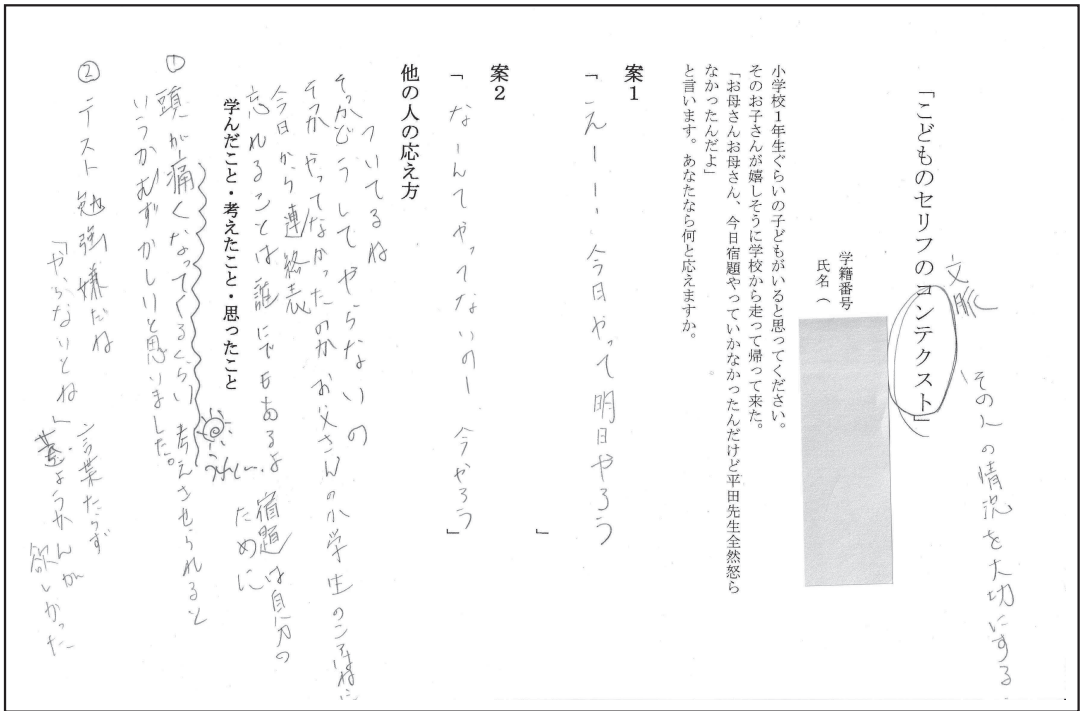 「こどものセリフのコンテクスト」
文脈
その人の情況を大切にする.
学籍番号
氏名（
小学校１年生ぐらいの子どもがいると思ってください。
そのお子さんが嬉しそうに学校から走って帰って来た。
「お母さんお母さん、今日宿題やっていかなかったんだけど平田先生全然怒ら
なかったんだよ」
と言います。あなたなら何と応えますか。
案１
「えーー、今日やって明日やろう
」
案２
「なーんでやってないのー 今やろう」
他の人の応え方
ついてるね
そっかどうしてやらないの
そっか やってなかったのかお父さんの小学生の
今日から連絡表
忘れることは誰にでもあるよ 宿題は自分の
ために
学んだこと・考えたこと・思ったこと
うれしい
① 頭が痛くなってくるくらい考えさせられると
いうかむずかしいと思いました。
② テスト勉強嫌だね
「やらないとね」
言葉たらず
ようかんが
欲しかった